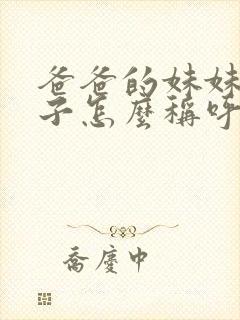 爸爸的妹妹
子怎麼稱呼
喬慶中